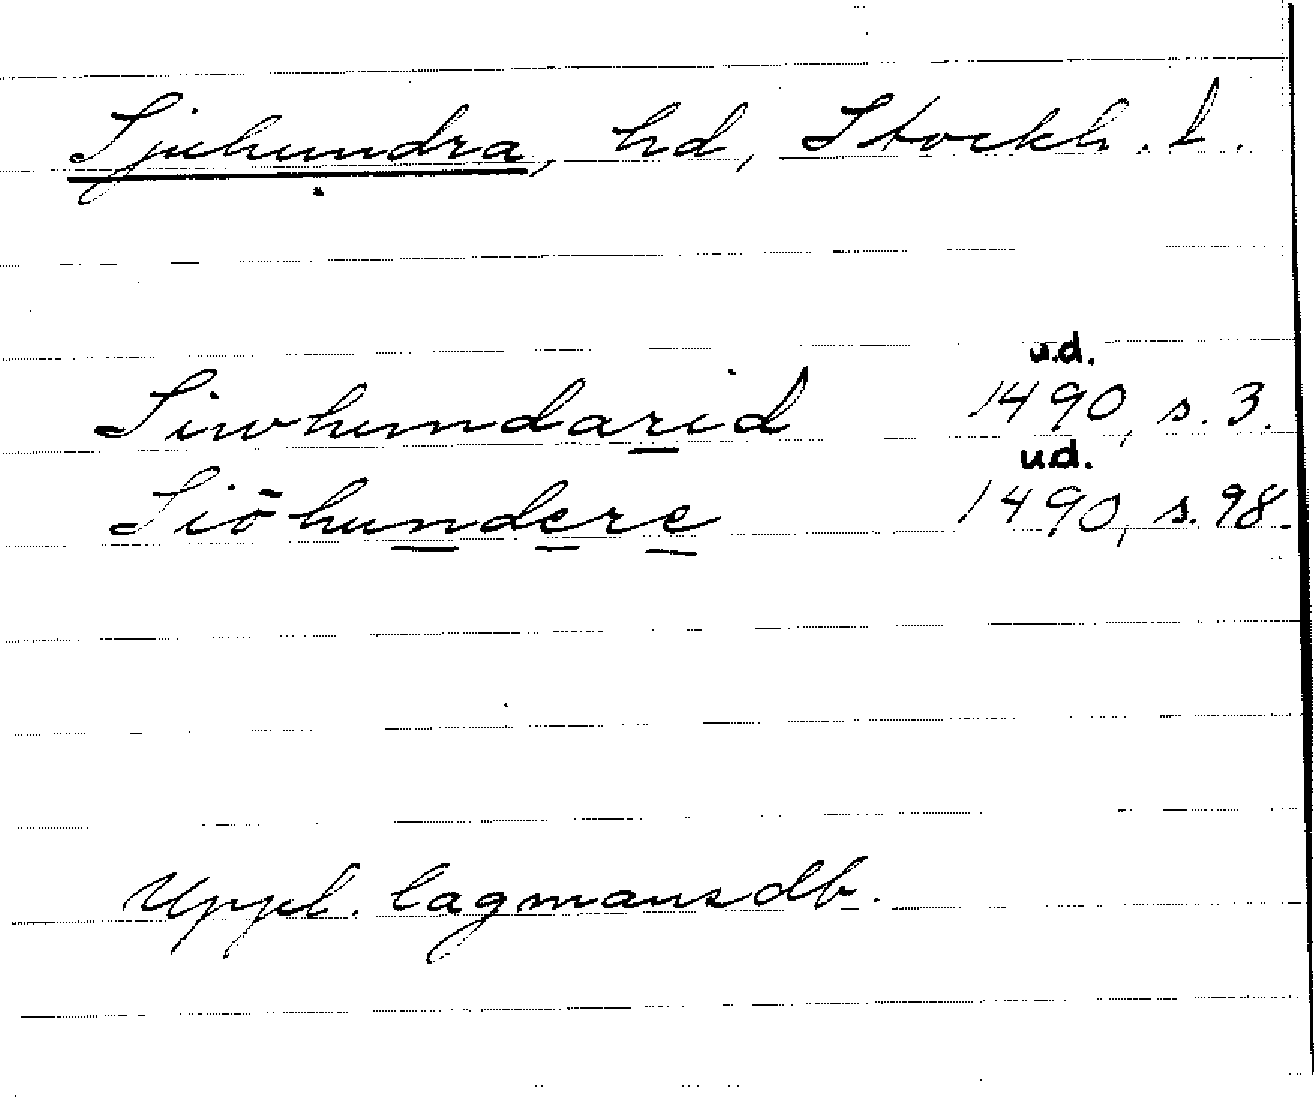 Sjuhundra, hd, Stockh. l.
u.d.
Siwhundarid 1490, s. 3.
u.d.
Siöhundere 1490, s. 98.
Uppl. lagmansdb.